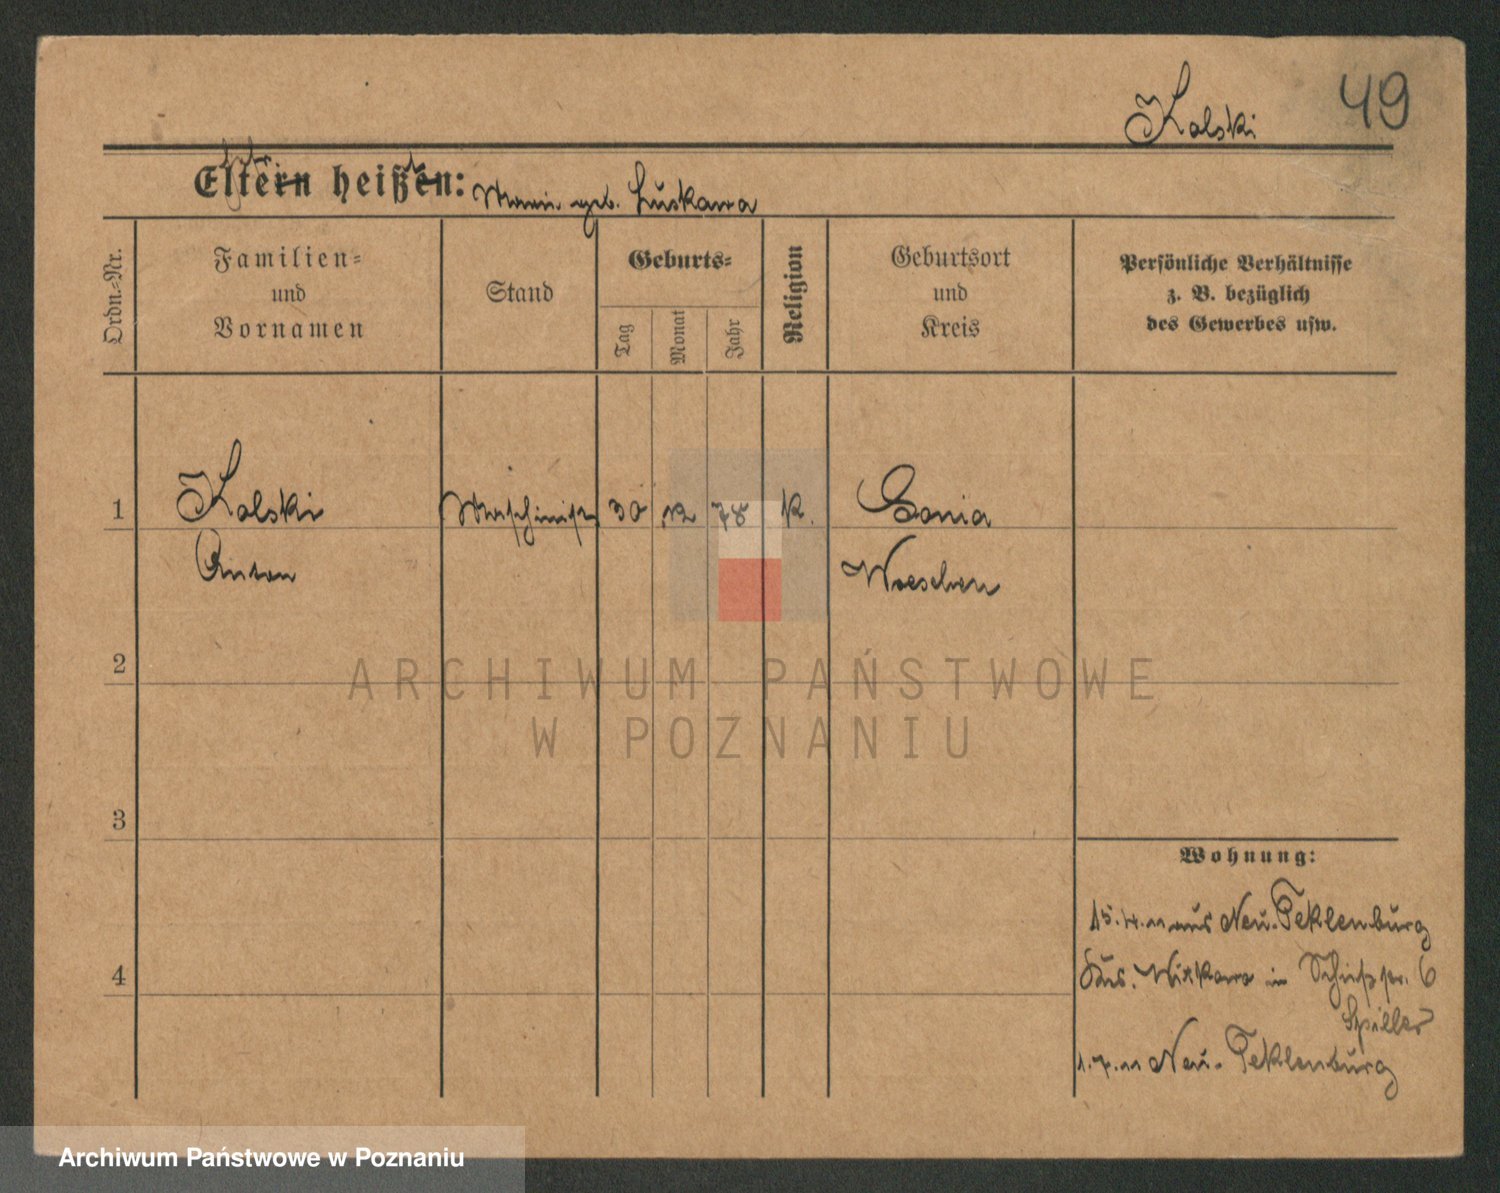 Kolski 49
Eltern heißen: Marie geb. Luskawa
Ordn.-Nr.
Familien-
und
Vornamen
Stand
Geburts-
Tag
Monat
Jahr
Religion
Geburtsort
und
Kreis
Persönliche Verhältnisse
z. B. bezüglich
des Gewerbes usw.
1 Kolski Maschinist 30 12 78 k. Gonia
Anton Wreschen
2
ARCHIWUM PAŃSTWOWE
W POZNANIU
3
Wohnung:
15.4.11 aus Neu-Teklenburg
4
Kr. Witkowo in Schießstr. 6
Spiller
1.7.11 Neu-Teklenburg
Archiwum Państwowe w Poznaniu